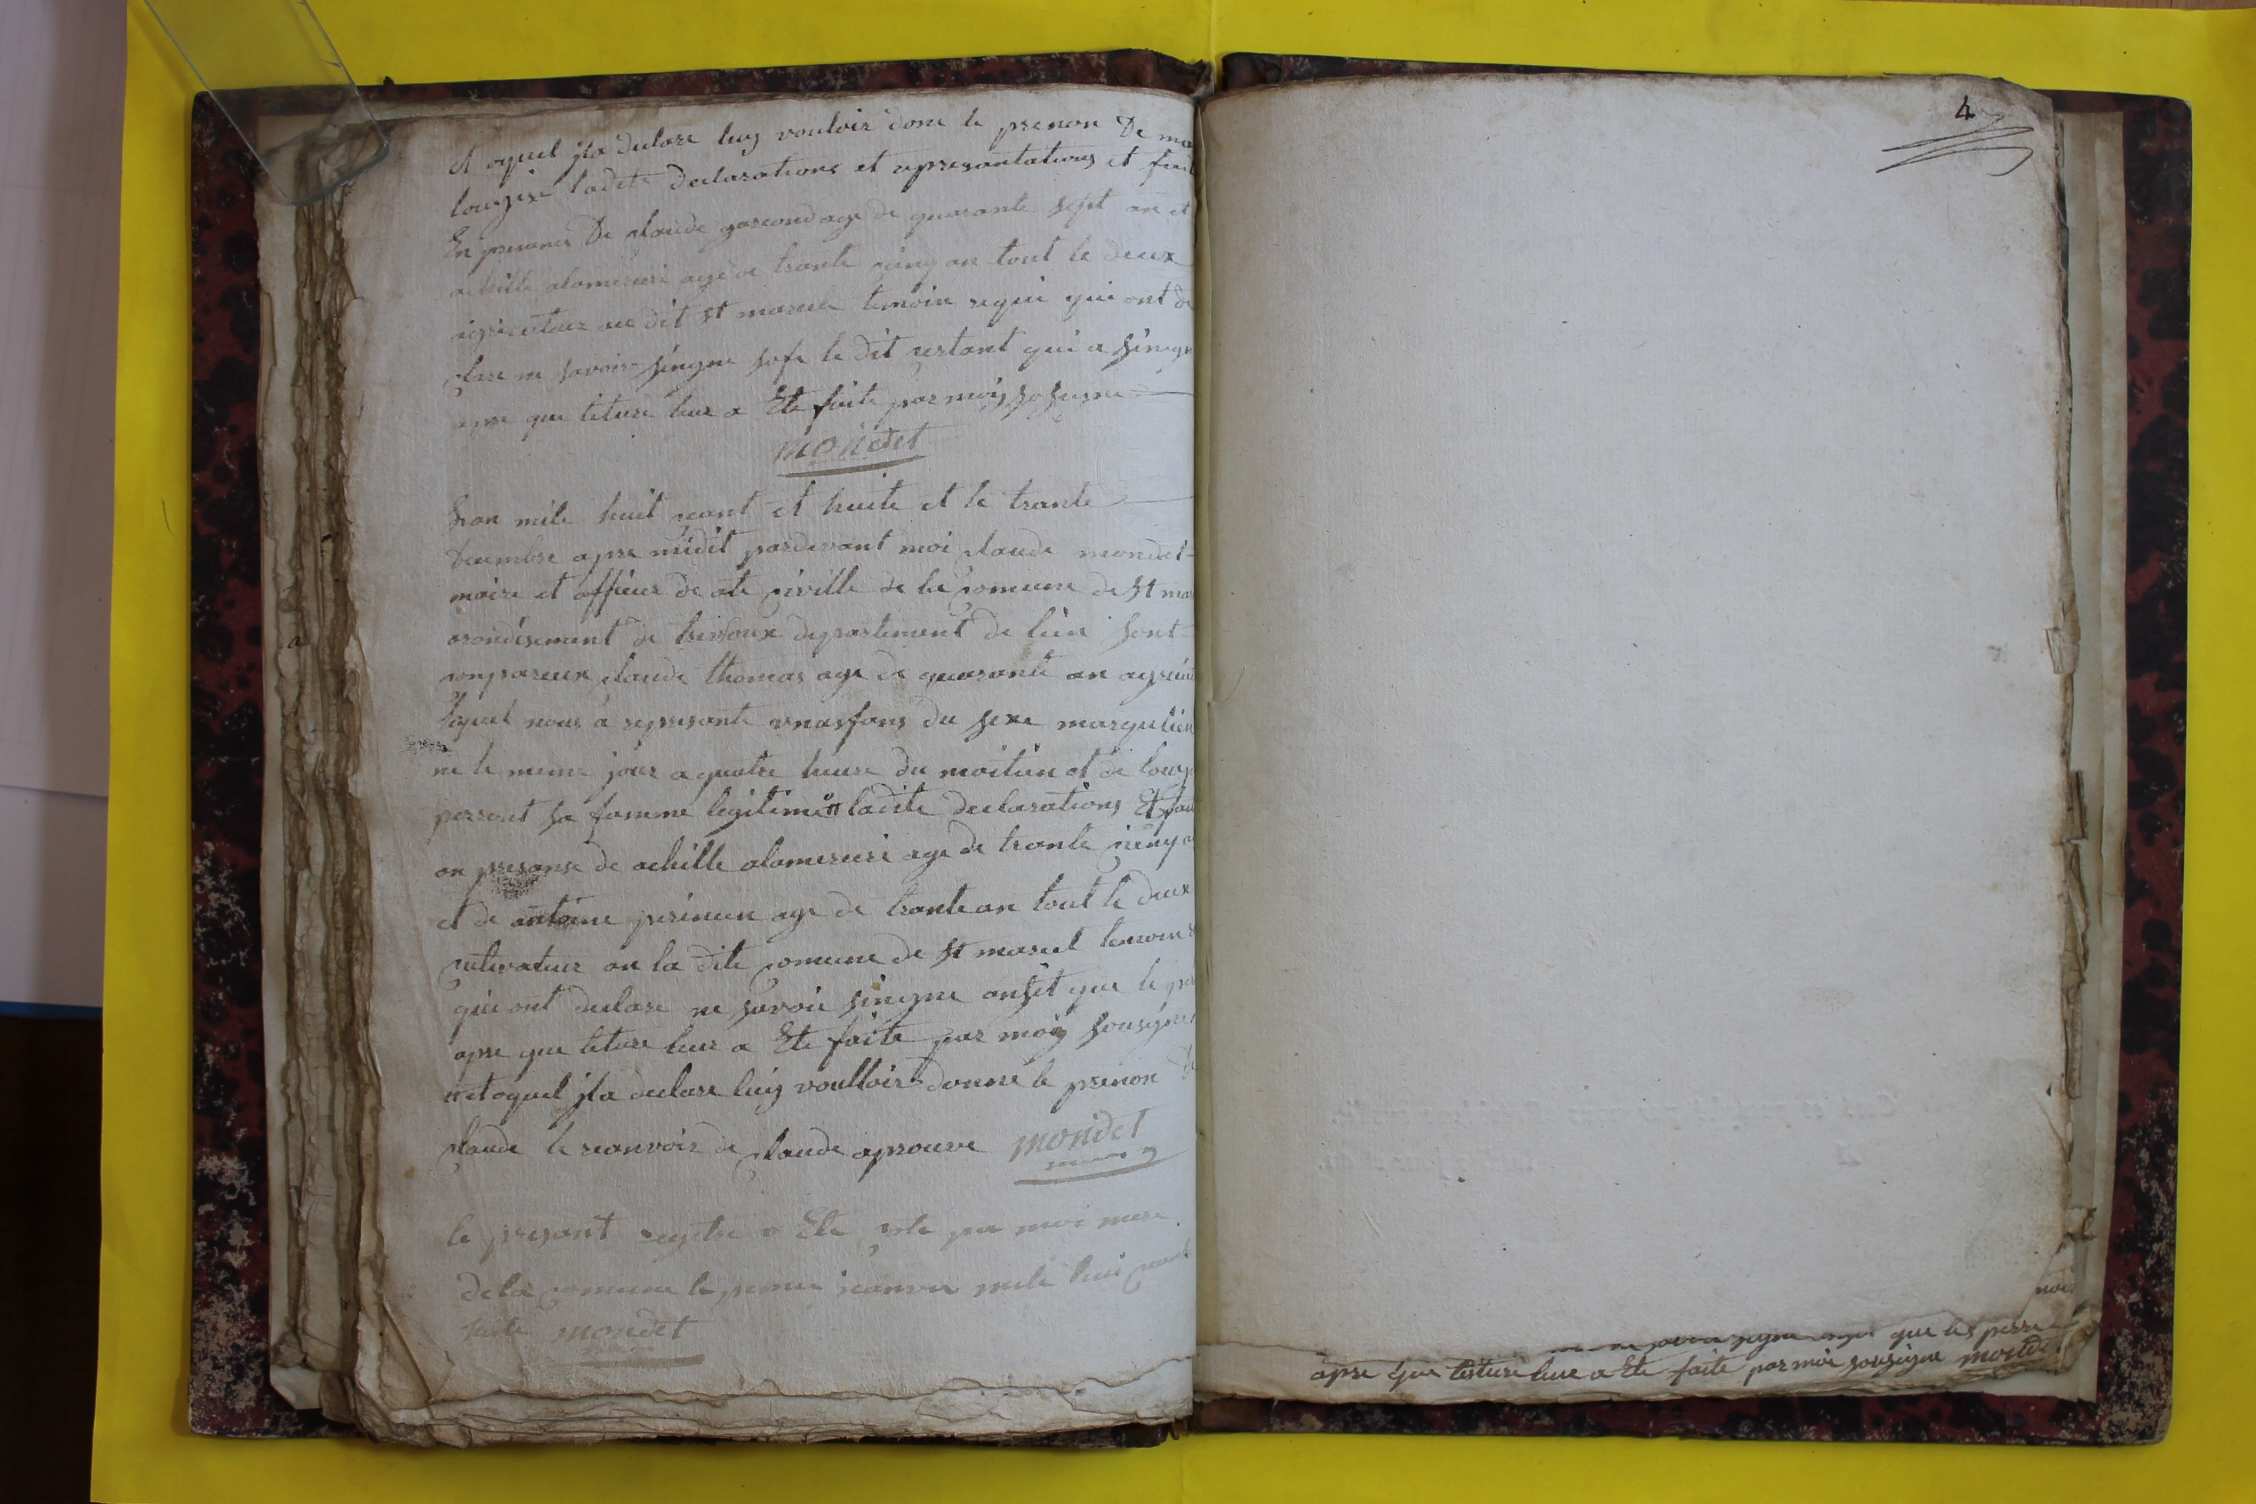 et oquel jla declare luy vouloir done le prenon De ma
louyse ladite declarations et represantations et fait
En presance De claude gascond age de quarante sept an et
achille alamercuri age de trante cinq an tout le deux
agriculteur au dit st marcel temoin requi qui ont de
clare ne savoir singne sofe le dit restant qui a singn
apre que leture leur a Ete faite par moij sosigne
mondet
Lan mile huit cant et huite et le trante
decembre apre midit pardevant moi claude mondet
maire et officier de ate civille de la comune de st mar
arondisement de trevoux departement de lein sont
compareux claude thomas age de quarante an agricu
lequel nous a represante unasfans du sexe masqulien
ne le meme jour a quatre heure du maitien et de louyse
perrout sa famme legitime ladite declarations Et fait
an presanse de achille alamercuri age de trante cinq an
et de antoine perineu age de trante an tout le deux
cultivateur an la dite comune de st marcel temoins
qui ont declare ne savoir singne ansit que le pe
apre que leture leur a Ete faite par moij sousigne
et oquel jla declare luij voulloir donne le prenon de
claude le ranvoir de claude aprouve mondet
le presant regitre a Ete clote par moi mere
de la comune le premier janvier mile huit cant
huite mondet
4
noi
que les perre
apre que lesture leur a Ete faite par moi sousigne mondet